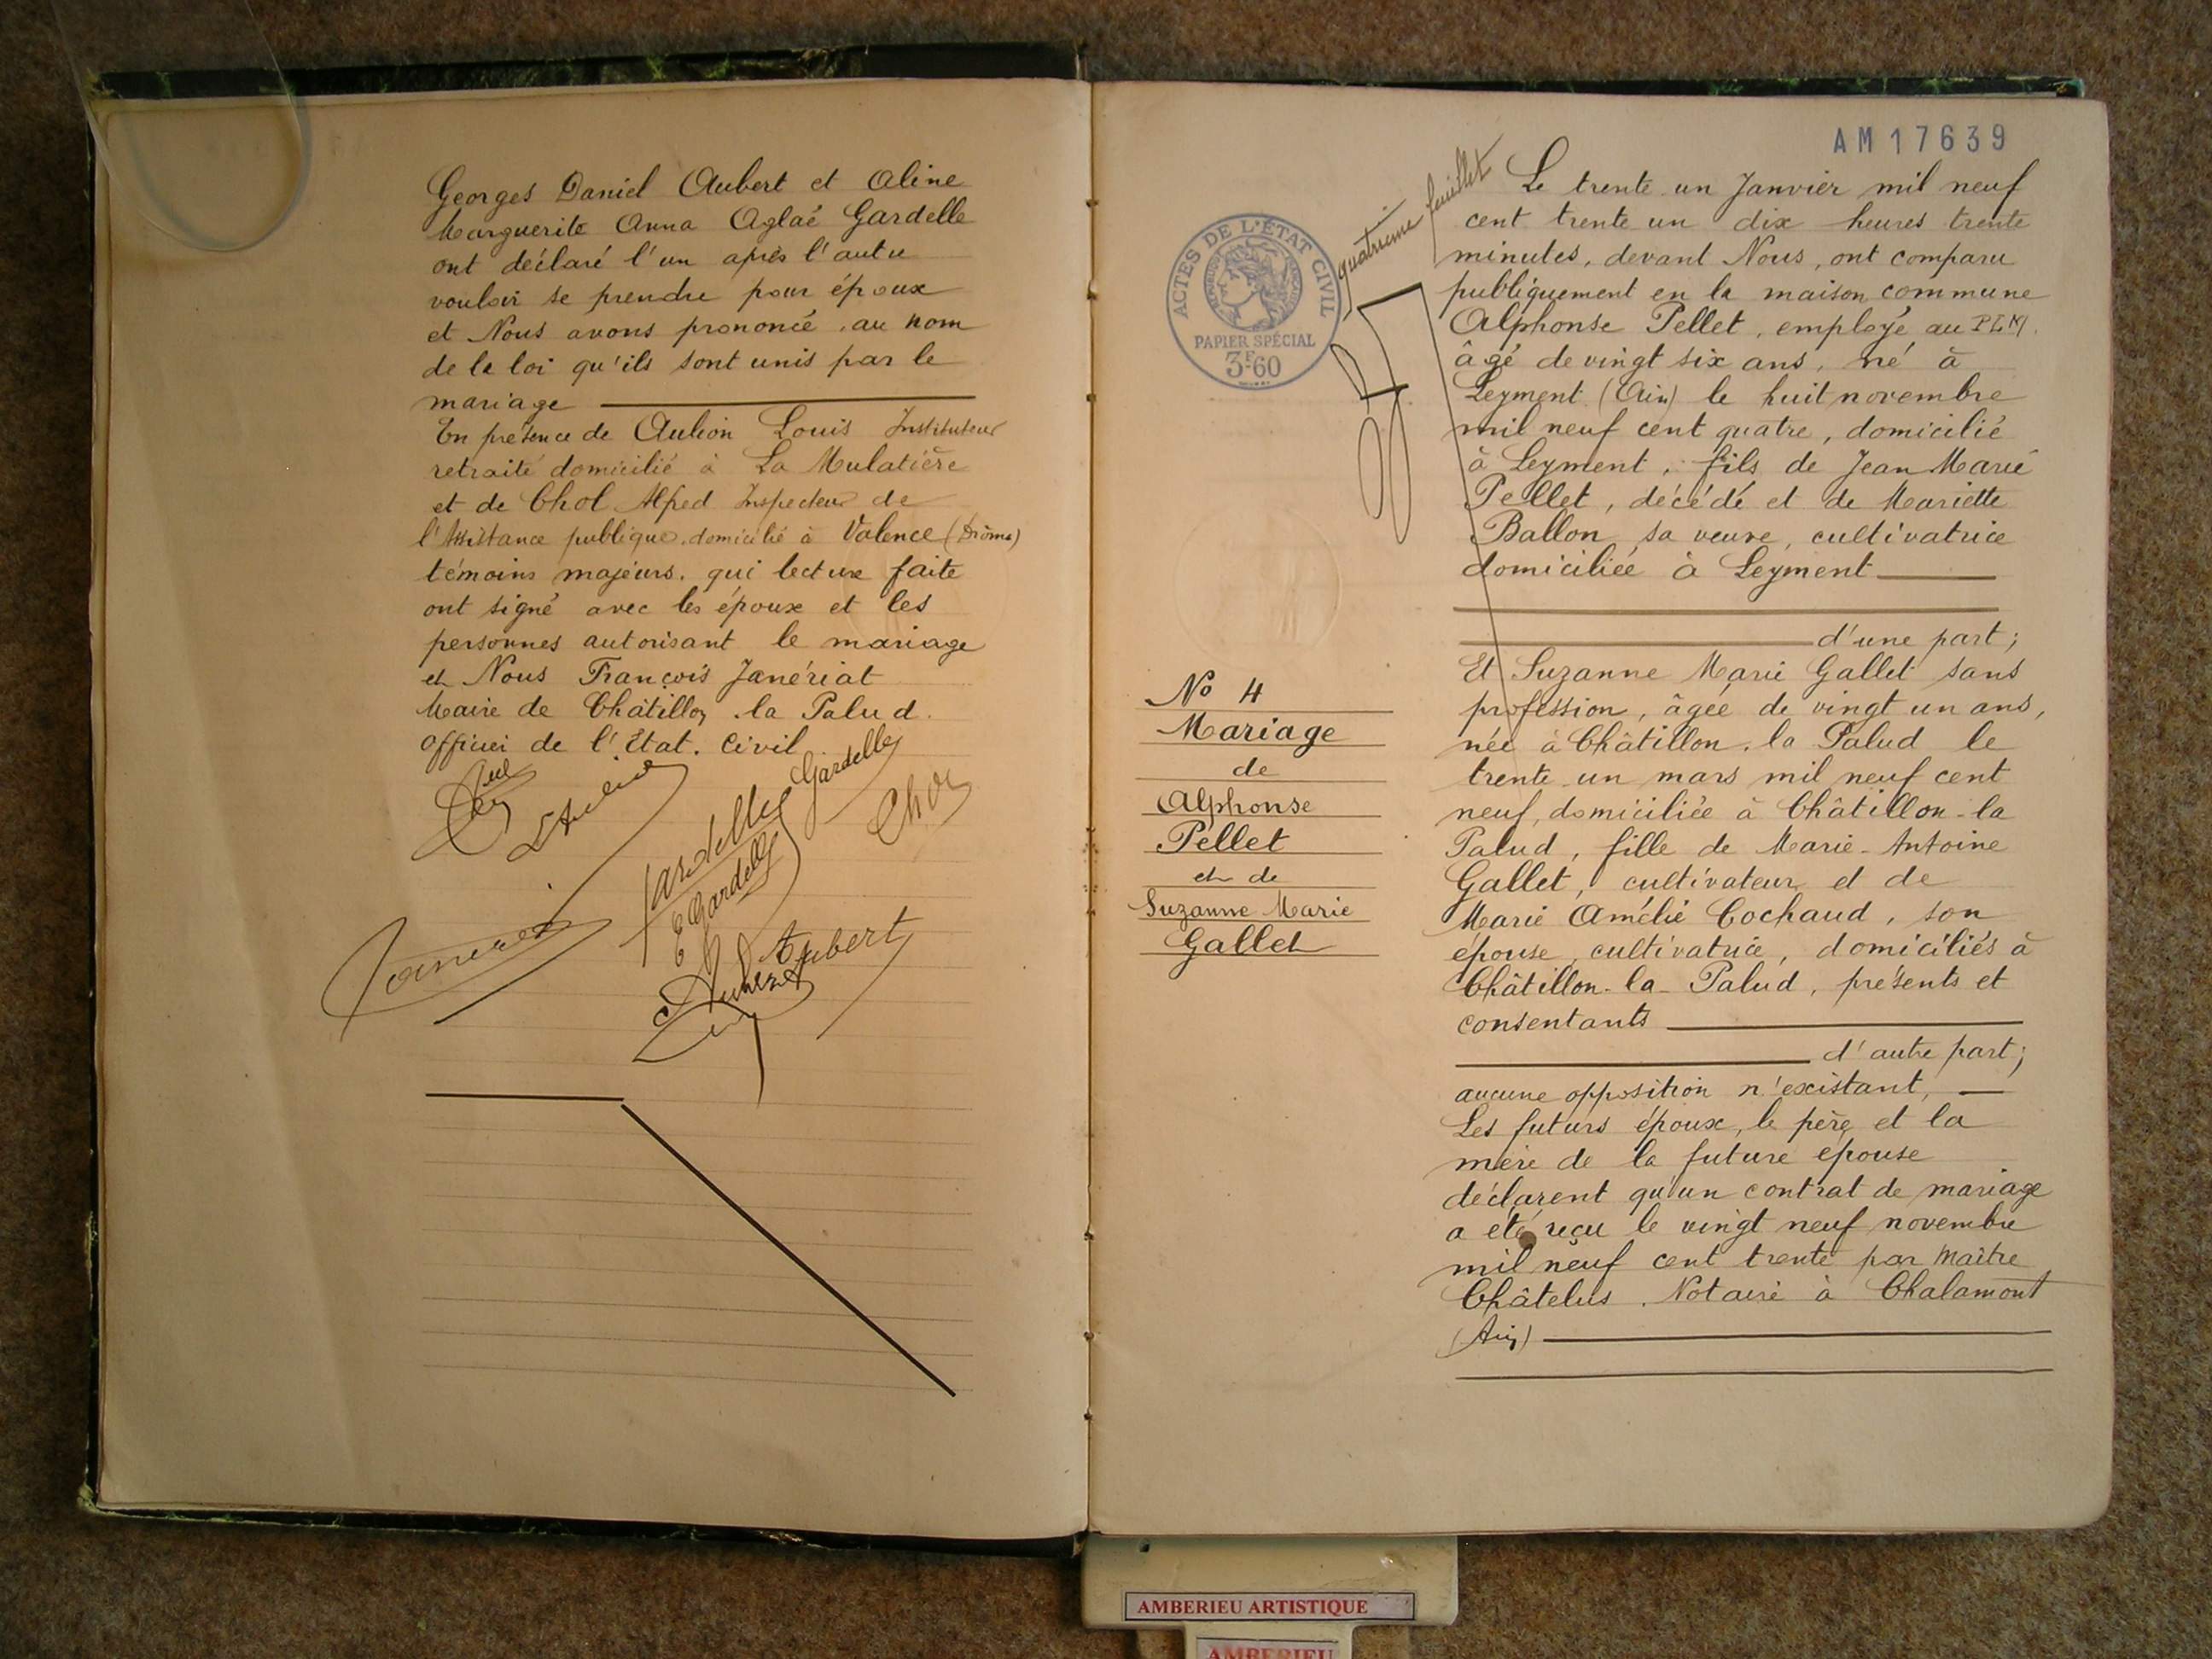 Georges Daniel Aubert et Aline
Marguerite Anna Aglaé Gardelle
ont déclaré l'un après l'autre
vouloir se prendre pour époux
et Nous avons prononcé, au nom
de la loi qu'ils sont unis par le
mariage
En présence de Aulion Louis Instituteur
retraité domicilié à La Mulatière
et de Chol Alfred Inspecteur de
l'Assistance publique domicilié à Valence (Drôme)
témoins majeurs. qui lecture faite
ont signé avec les époux et les
personnes autorisant le mariage
et Nous François Janériat
Maire de Châtillon la Palud.
Officier de l'Etat. Civil
Gardelle
Chol
Gardelle
E Gardelle
Aubert
AM17639
quatrième feuillet
ACTES DE L'ÉTAT CIVIL
PAPIER SPÉCIAL
3F60
Le trente un Janvier mil neuf
cent trente un dix heures trente
minutes, devant Nous, ont comparu
publiquement en la maison commune
Alphonse Pellet, employé au PLM.
âgé de vingt six ans, né à
Leyment (Ain) le huit novembre
mil neuf cent quatre, domicilié
à Leyment, fils de Jean Marie
Pellet, décédé et de Mariette
Ballon sa veuve, cultivatrice
domiciliée à Leyment
d'une part;
Et Suzanne Marie Gallet sans
profession, âgée de vingt un ans,
née à Châtillon. la Palud le
trente un mars mil neuf cent
neuf, domiciliée à Châtillon-la
Palud, fille de Marie-Antoine
Gallet, cultivateur et de
Marie Amélie Cochaud, son
épouse, cultivatrice, domiciliés à
Châtillon-la-Palud, présents et
consentants
d'autre part;
aucune opposition n'existant,
Les futurs époux, le père et la
mère de la future épouse
déclarent qu'un contrat de mariage
a été reçu le vingt neuf novembre
mil neuf cent trente par Maître
Châtelus. Notaire à Chalamont
(Ain)
No 4
Mariage
de
Alphonse
Pellet
et de
Suzanne Marie
Gallet
AMBERIEU ARTISTIQUE
AMBERIEU